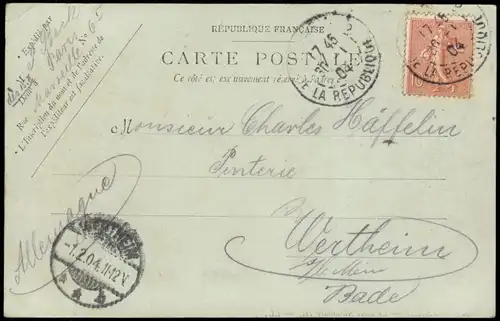 RÉPUBLIQUE FRANÇAISE
CARTE POSTALE
Ce côté est exclusivement réservé à l'adresse
Expédié par
Rue
Marseille
No 65
L'inscription du nom et de l'adresse de
l'Expéditeur est facultative.
17 45
04
DE LA RÉPUBLIQUE
17 45
04
DE LA RÉPUBLIQUE
Monsieur Charles Häffelin
Wertheim
s/le Mein
Bade
Allemagne
WERTHEIM
-1.2.04.11-12V